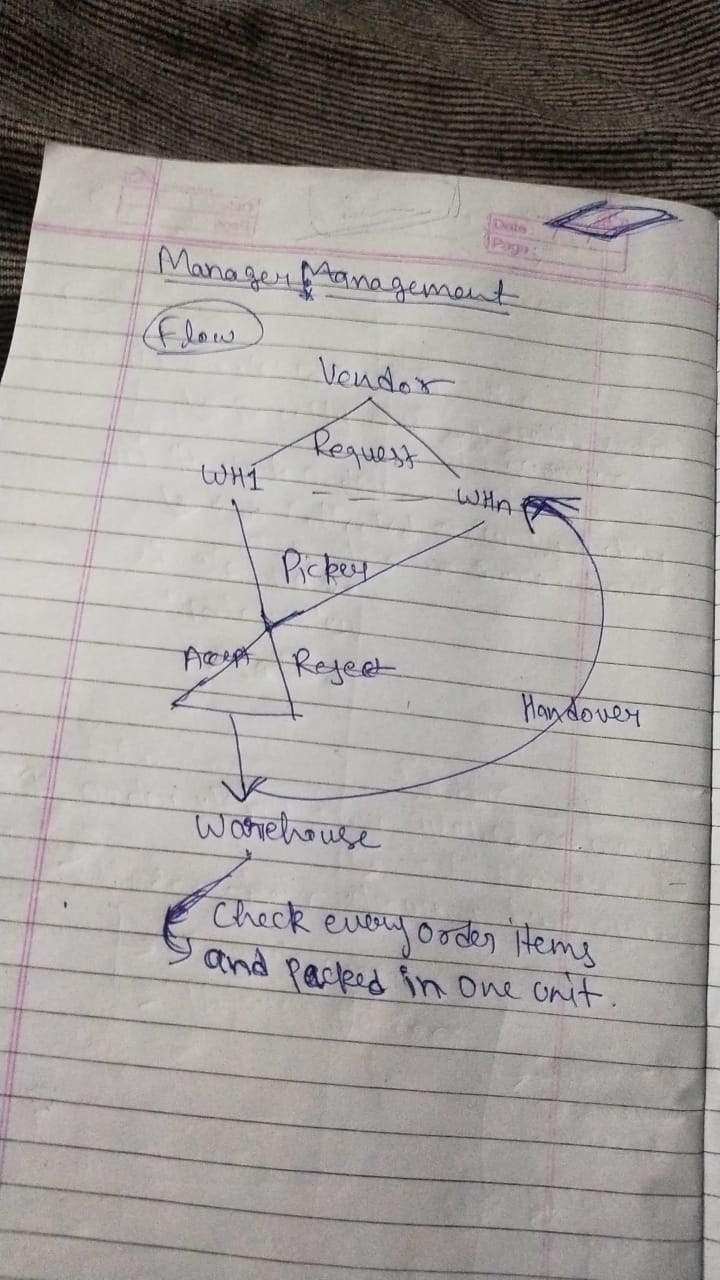 Date :
Page :
Manager Management
Flow
Vendor
Request
WH1
WHn
Picker
Accept
Reject
Handover
Warehouse
Check every order items
and packed in one unit.